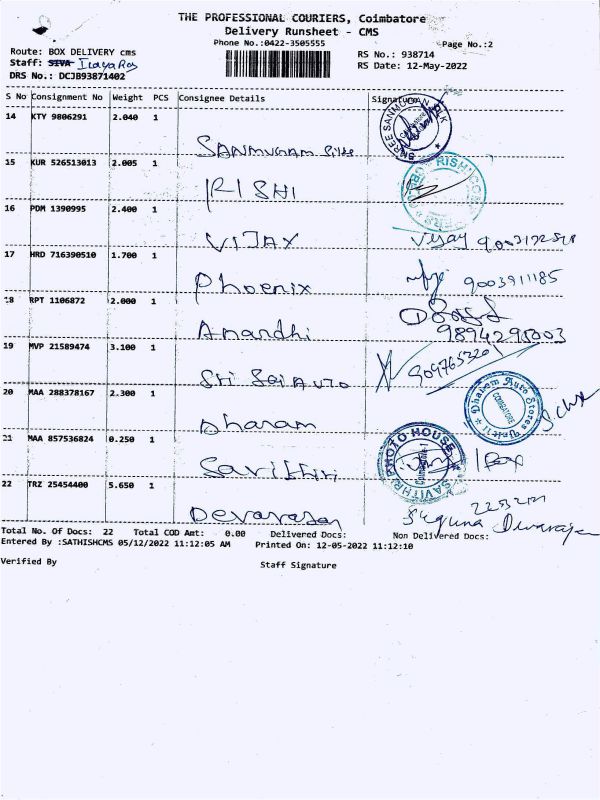 THE PROFESSIONAL COURIERS, Coimbatore
Delivery Runsheet - CMS
Phone No.:0422-3505555
Page No.:2
Route: BOX DELIVERY cms
RS No.: 938714
Staff: SIVA
RS Date: 12-May-2022
DRS No.: DCJB93871402
S No Consignment No Weight PCS Consignee Details Signature
14 KTY 9806291 2.040 1
SANMUGAM Silks
SHREE SANMUGAN SILK
15 KUR 526513013 2.005 1
RISHI
16 PDM 1390995 2.400 1
VIJAY
Vijay
17 HRD 716390510 1.700 1
Phoenix
9003911185
18 RPT 1106872 2.000 1
Anandhi
9894295003
19 MVP 21589474 3.100 1
Sri Sai Auto
20 MAA 288378167 2.300 1
Dharam
Dharam Auto Stores
COIMBATORE
21 MAA 857536824 0.250 1
Savithri
SAVITHRI PHOTO HOUSE
22 TRZ 25454400 5.650 1
Devarajan
Suguna Devaraja
Total No. Of Docs: 22 Total COD Amt: 0.00 Delivered Docs: Non Delivered Docs:
Entered By :SATHISHCMS 05/12/2022 11:12:05 AM Printed On: 12-05-2022 11:12:10
Verified By Staff Signature